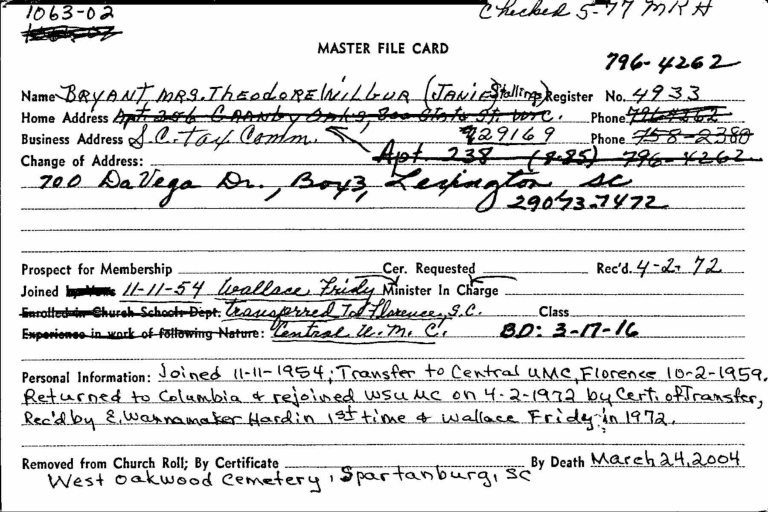 1063-02
Checked 5-77 MRH
MASTER FILE CARD
796-4262
Name BRYANT MRS. THEODORE WILBUR (JANIE Stalling) Register No. 4933
Home Address Apt 206 GRANBY Oaks, 800 State St. W.C. Phone
Business Address S.C. Tax Comm. 29169 Phone 758-2380
Change of Address: Apt. 238 (8-85) 796-4262
700 DaVega Dr., Box 3, Lexington SC
29073-7472
Prospect for Membership Cer. Requested Rec'd. 4-2-72
Joined 11-11-54 Wallace Fridy Minister In Charge
Enrolled in Church School: Dept. transferred To Florence, S.C. Class
Experience in work of following Nature: Central U.M.C. BD: 3-17-16
Personal Information: Joined 11-11-1954; Transfer to Central UMC, Florence 10-2-1959.
Returned to Columbia & rejoined WSUMC on 4-2-1972 by Cert. of Transfer,
Rec'd by E. Wannamaker Hardin 1st time & Wallace Fridy in 1972.
Removed from Church Roll; By Certificate By Death March 24, 2004
West Oakwood Cemetery, Spartanburg, SC